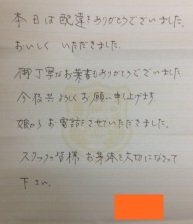 本日は配達をありがとうございました。
おいしくいただきました。
御丁寧なお葉書もありがとうございました
今后共よろしくお願い申し上げます
娘からお電話をさせていただきました。
スタッフの皆様、お身体を大切になさって
下さい。